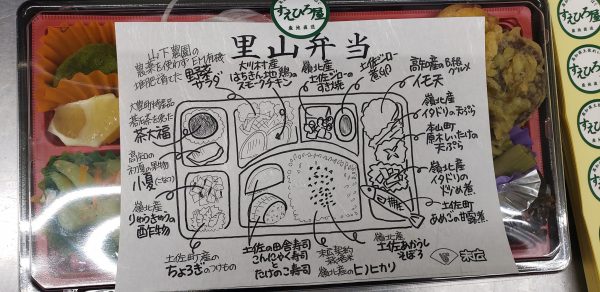 すえひろ屋
産地直送
里山弁当
山下農園の
農薬を使わずEM有機
堆肥で育てた野菜
サラダ
大川村産
はちきん地鶏の
スモークチキン
嶺北産
土佐ジローの
すき焼
土佐ジロー
煮卵
高知の日曜市
グルメ
イモ天
嶺北産
イタドリの天ぷら
本山町
原木しいたけの
天ぷら
嶺北産
イタドリの
土佐町
あめごの甘露煮
大豊町特産品
碁石茶を使った
茶大福
高知の
初夏の果物
小夏(こなつ)
嶺北産
りゅうきゅうの
酢の物
土佐町産の
ちょろぎのつけもの
土佐の田舎寿司
こんにゃく寿司
と
たけのこ寿司
嶺北産のヒノヒカリ
嶺北産
土佐あかうし
そぼろ
末広
すえひろ屋